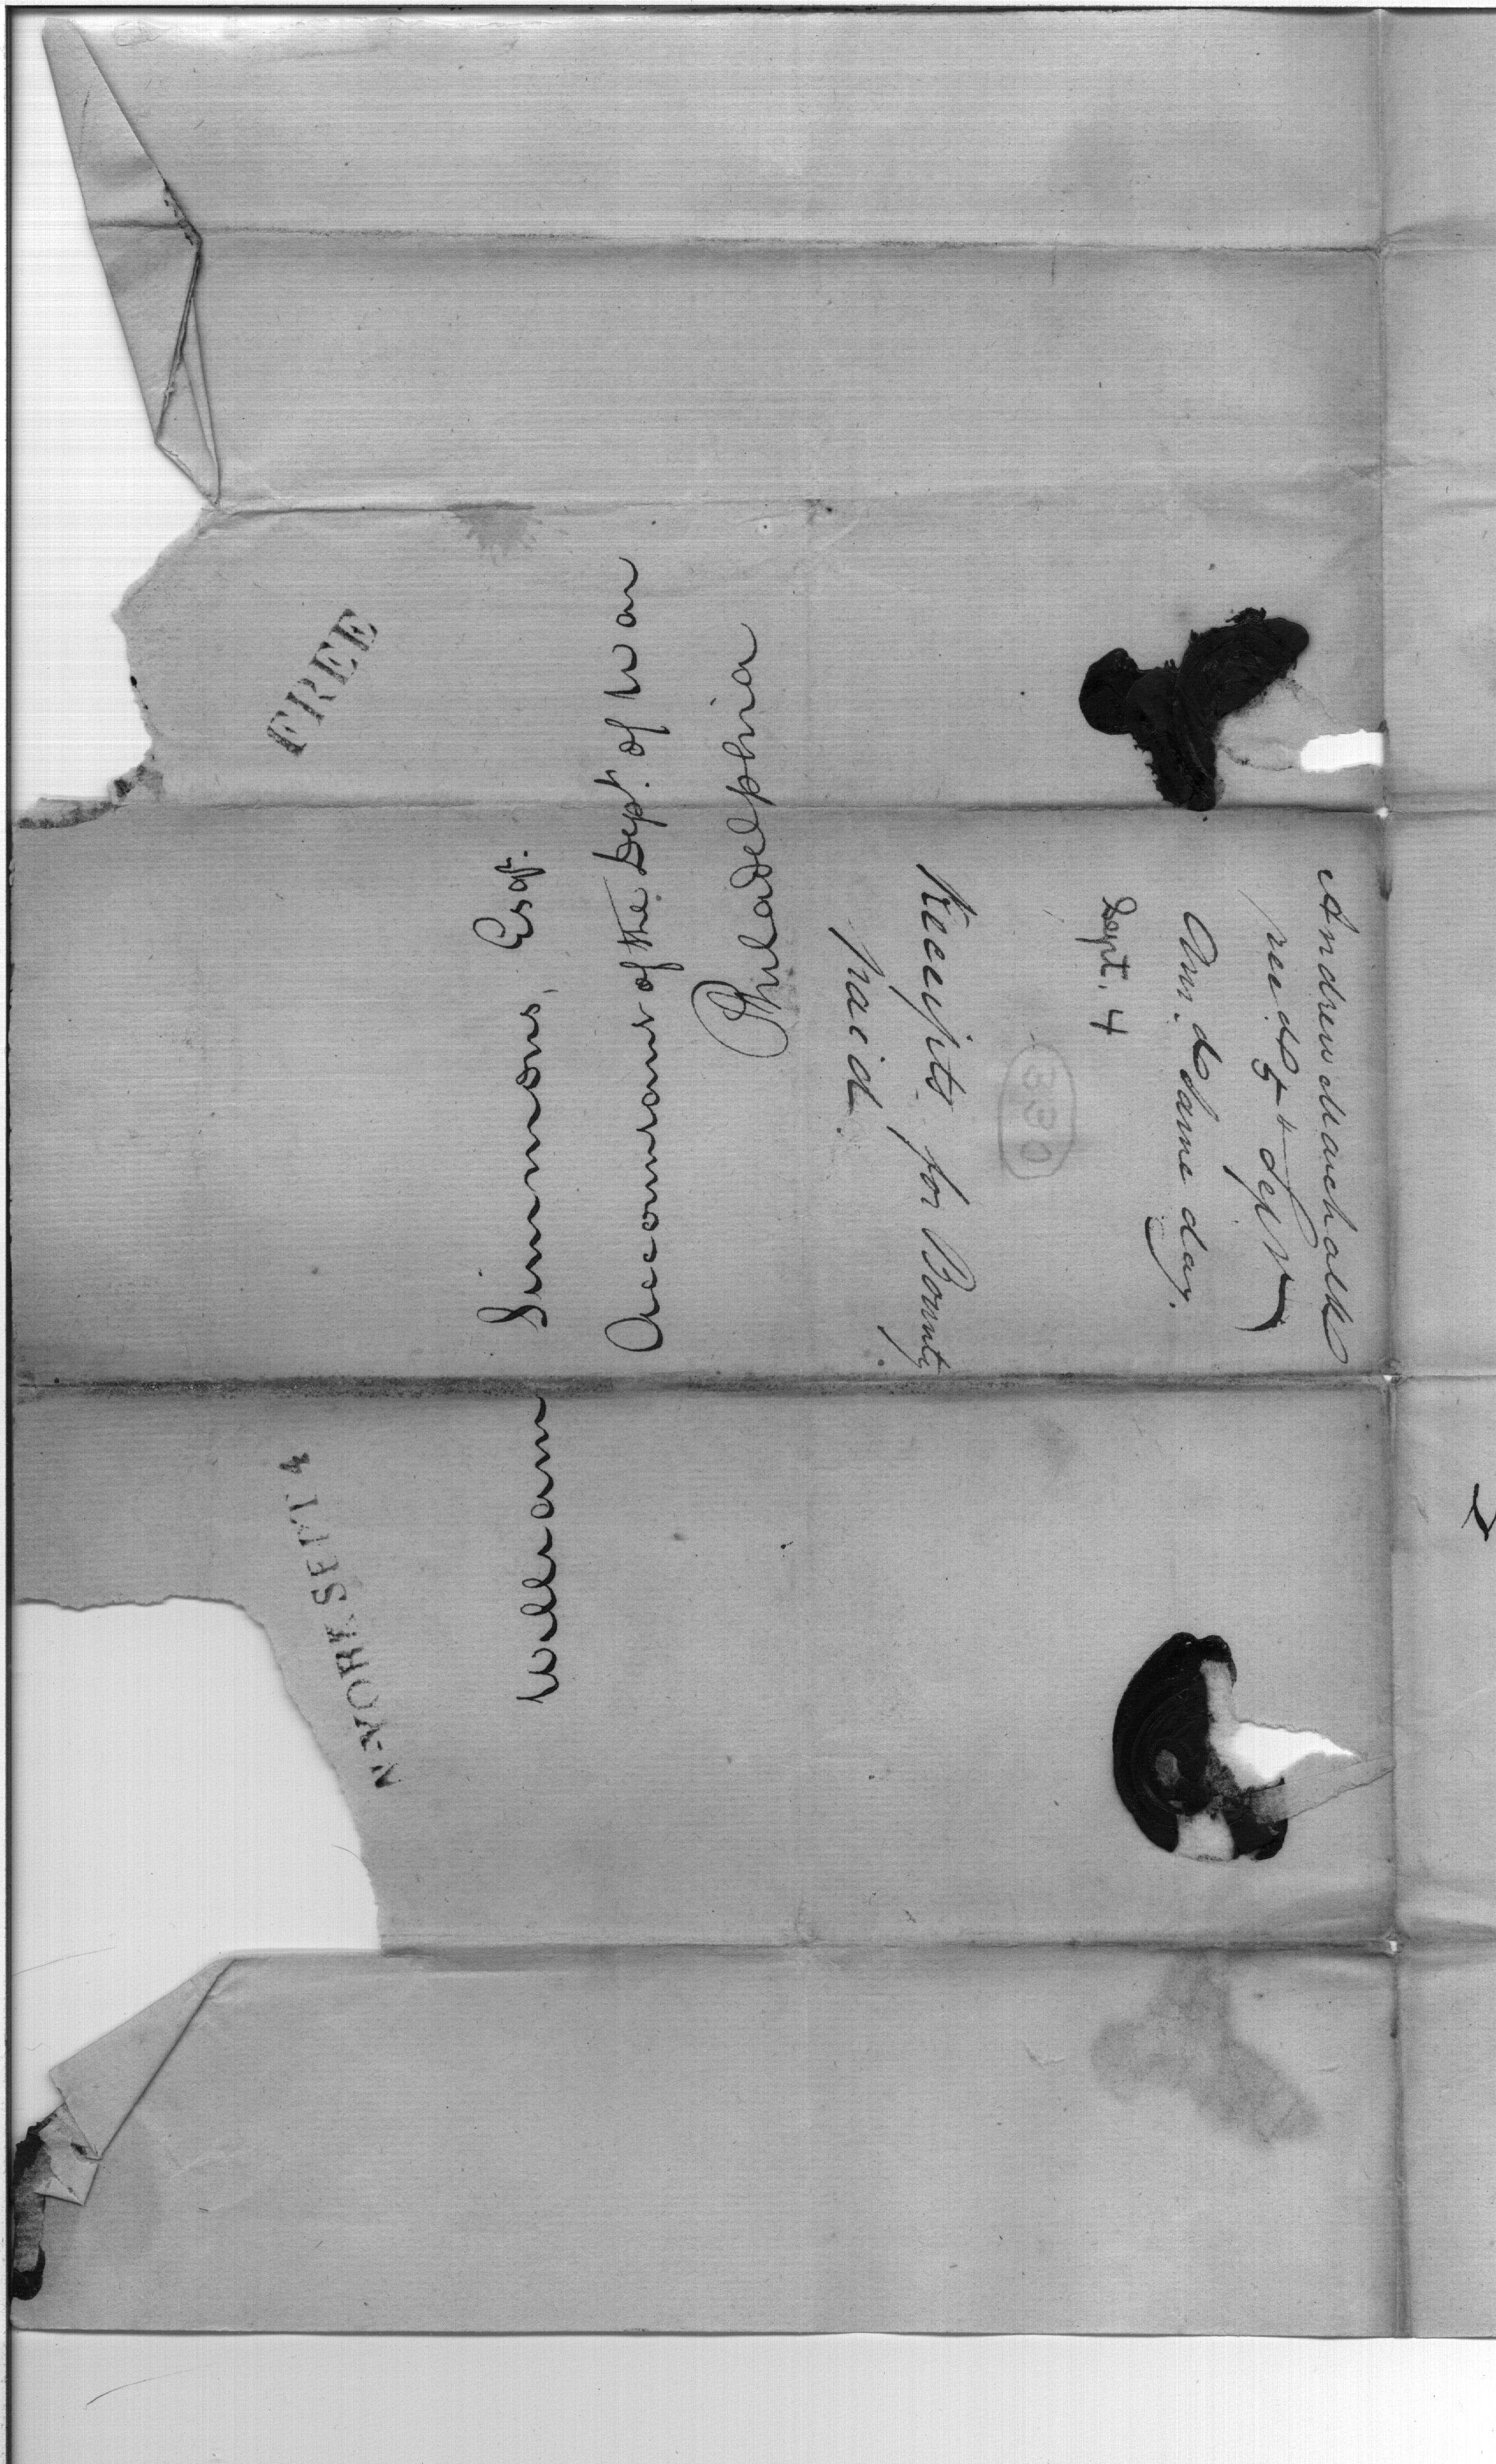 FREE
N-YORK SEPT 4
William Simmons, Esqr.
Accountant of the Dept. of War
Philadelphia
Andrew Marchalk
recd. 5th Sepr
Ans.d same day.
Sept. 4
330
Receipts for Bounty
paid.